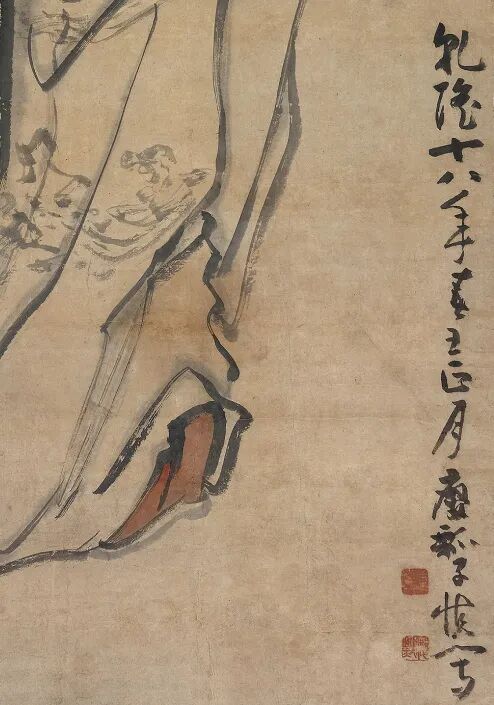 乾隆十八年春王正月癭瓢子慎寫